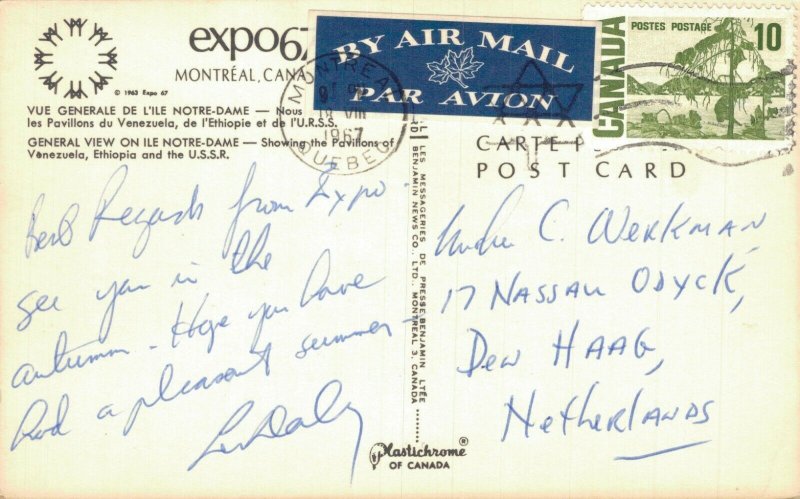 expo67
MONTRÉAL, CANA
© 1963 Expo 67
VUE GENERALE DE L'ILE NOTRE-DAME — Nous
les Pavillons du Venezuela, de l'Ethiopie et de l'U.R.S.S.
GENERAL VIEW ON ILE NOTRE-DAME — Showing the Pavillons of
Venezuela, Ethiopia and the U.S.S.R.
BY AIR MAIL
PAR AVION
MONTREAL
18 VIII
1967
QUEBEC
POSTES POSTAGE
10
CANADA
CARTE P
POST CARD
LES MESSAGERIES DE PRESSE BENJAMIN LTÉE
BENJAMIN NEWS CO., LTD., MONTREAL 3, CANADA
Best Regards from Expo
see you in the
autumn - Hope you have
had a pleasant summer -
C. WERKMAN
17 NASSAU ODYCK,
DEN HAAG,
NETHERLANDS
Plastichrome®
OF CANADA